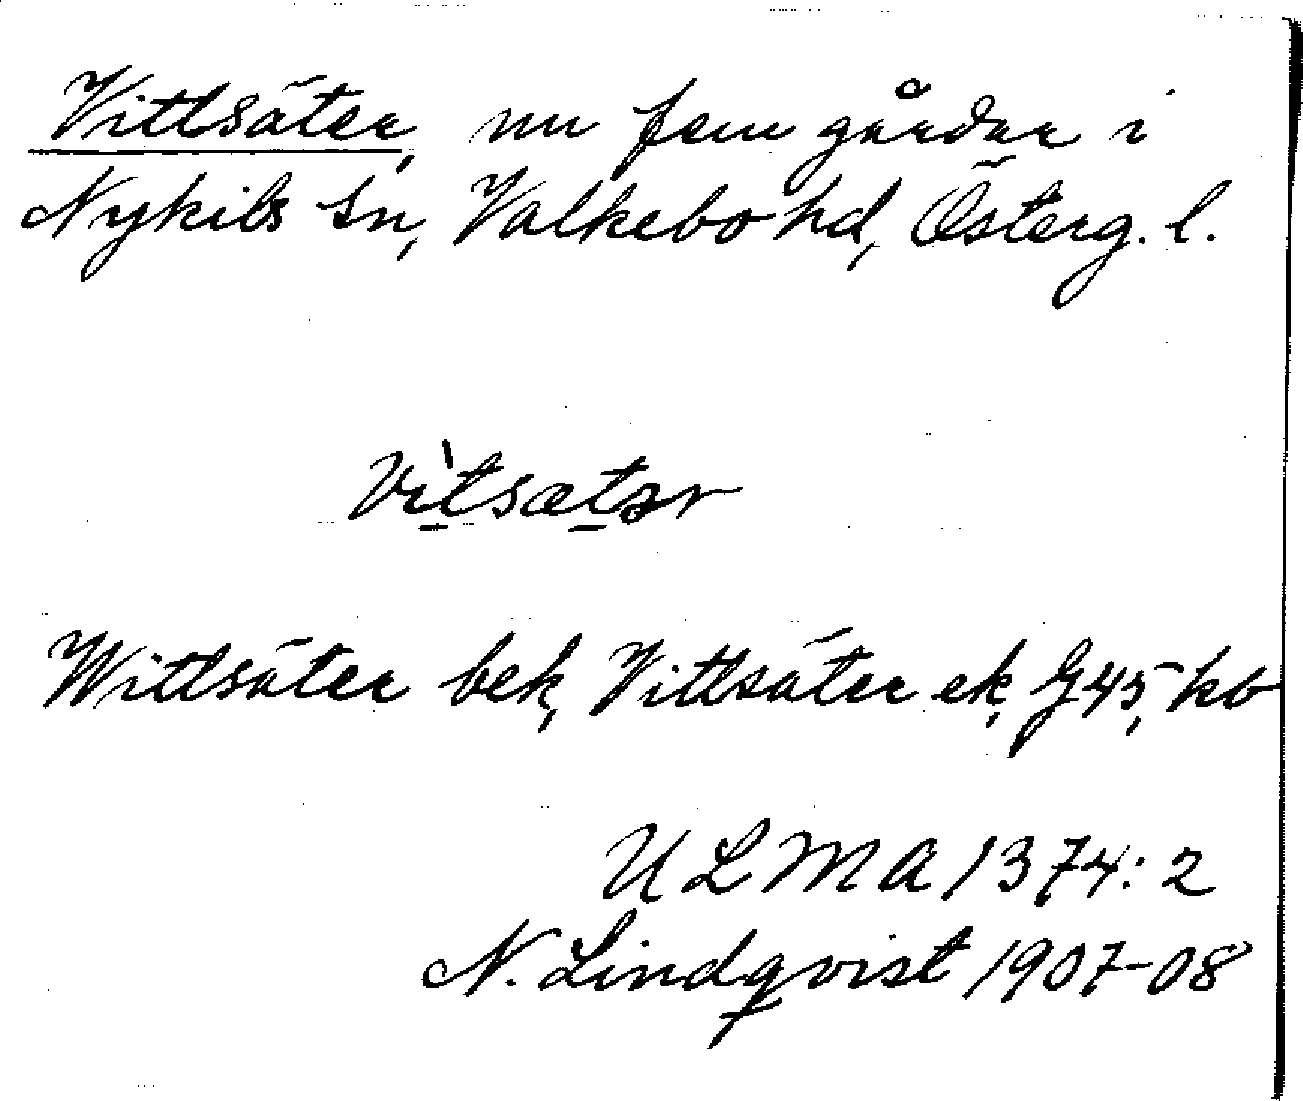 Vittsäter, nu fem gårdar i
Nykils sn, Valkebo hd, Österg. l.
Vìtsætər
Wittsäter bek, Vittsäter ek, G45, kb
ULMA 1374:2
N. Lindqvist 1907-08